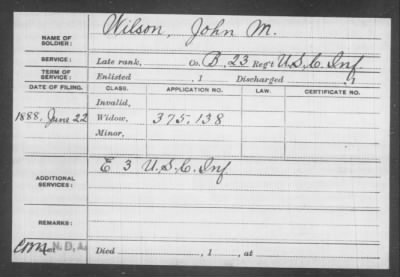 NAME OF SOLDIER: Wilson, John M.
SERVICE: Late rank, Co. B, 23 Reg't U.S.C. Inf
TERM OF SERVICE: Enlisted , 1 Discharged , 1
DATE OF FILING. CLASS. APPLICATION NO. LAW. CERTIFICATE NO.
Invalid,
1888, June 22 Widow, 375,138
Minor,
ADDITIONAL SERVICES: E 3 U.S.C. Inf
REMARKS:
N.D.A. Died , 1 , at